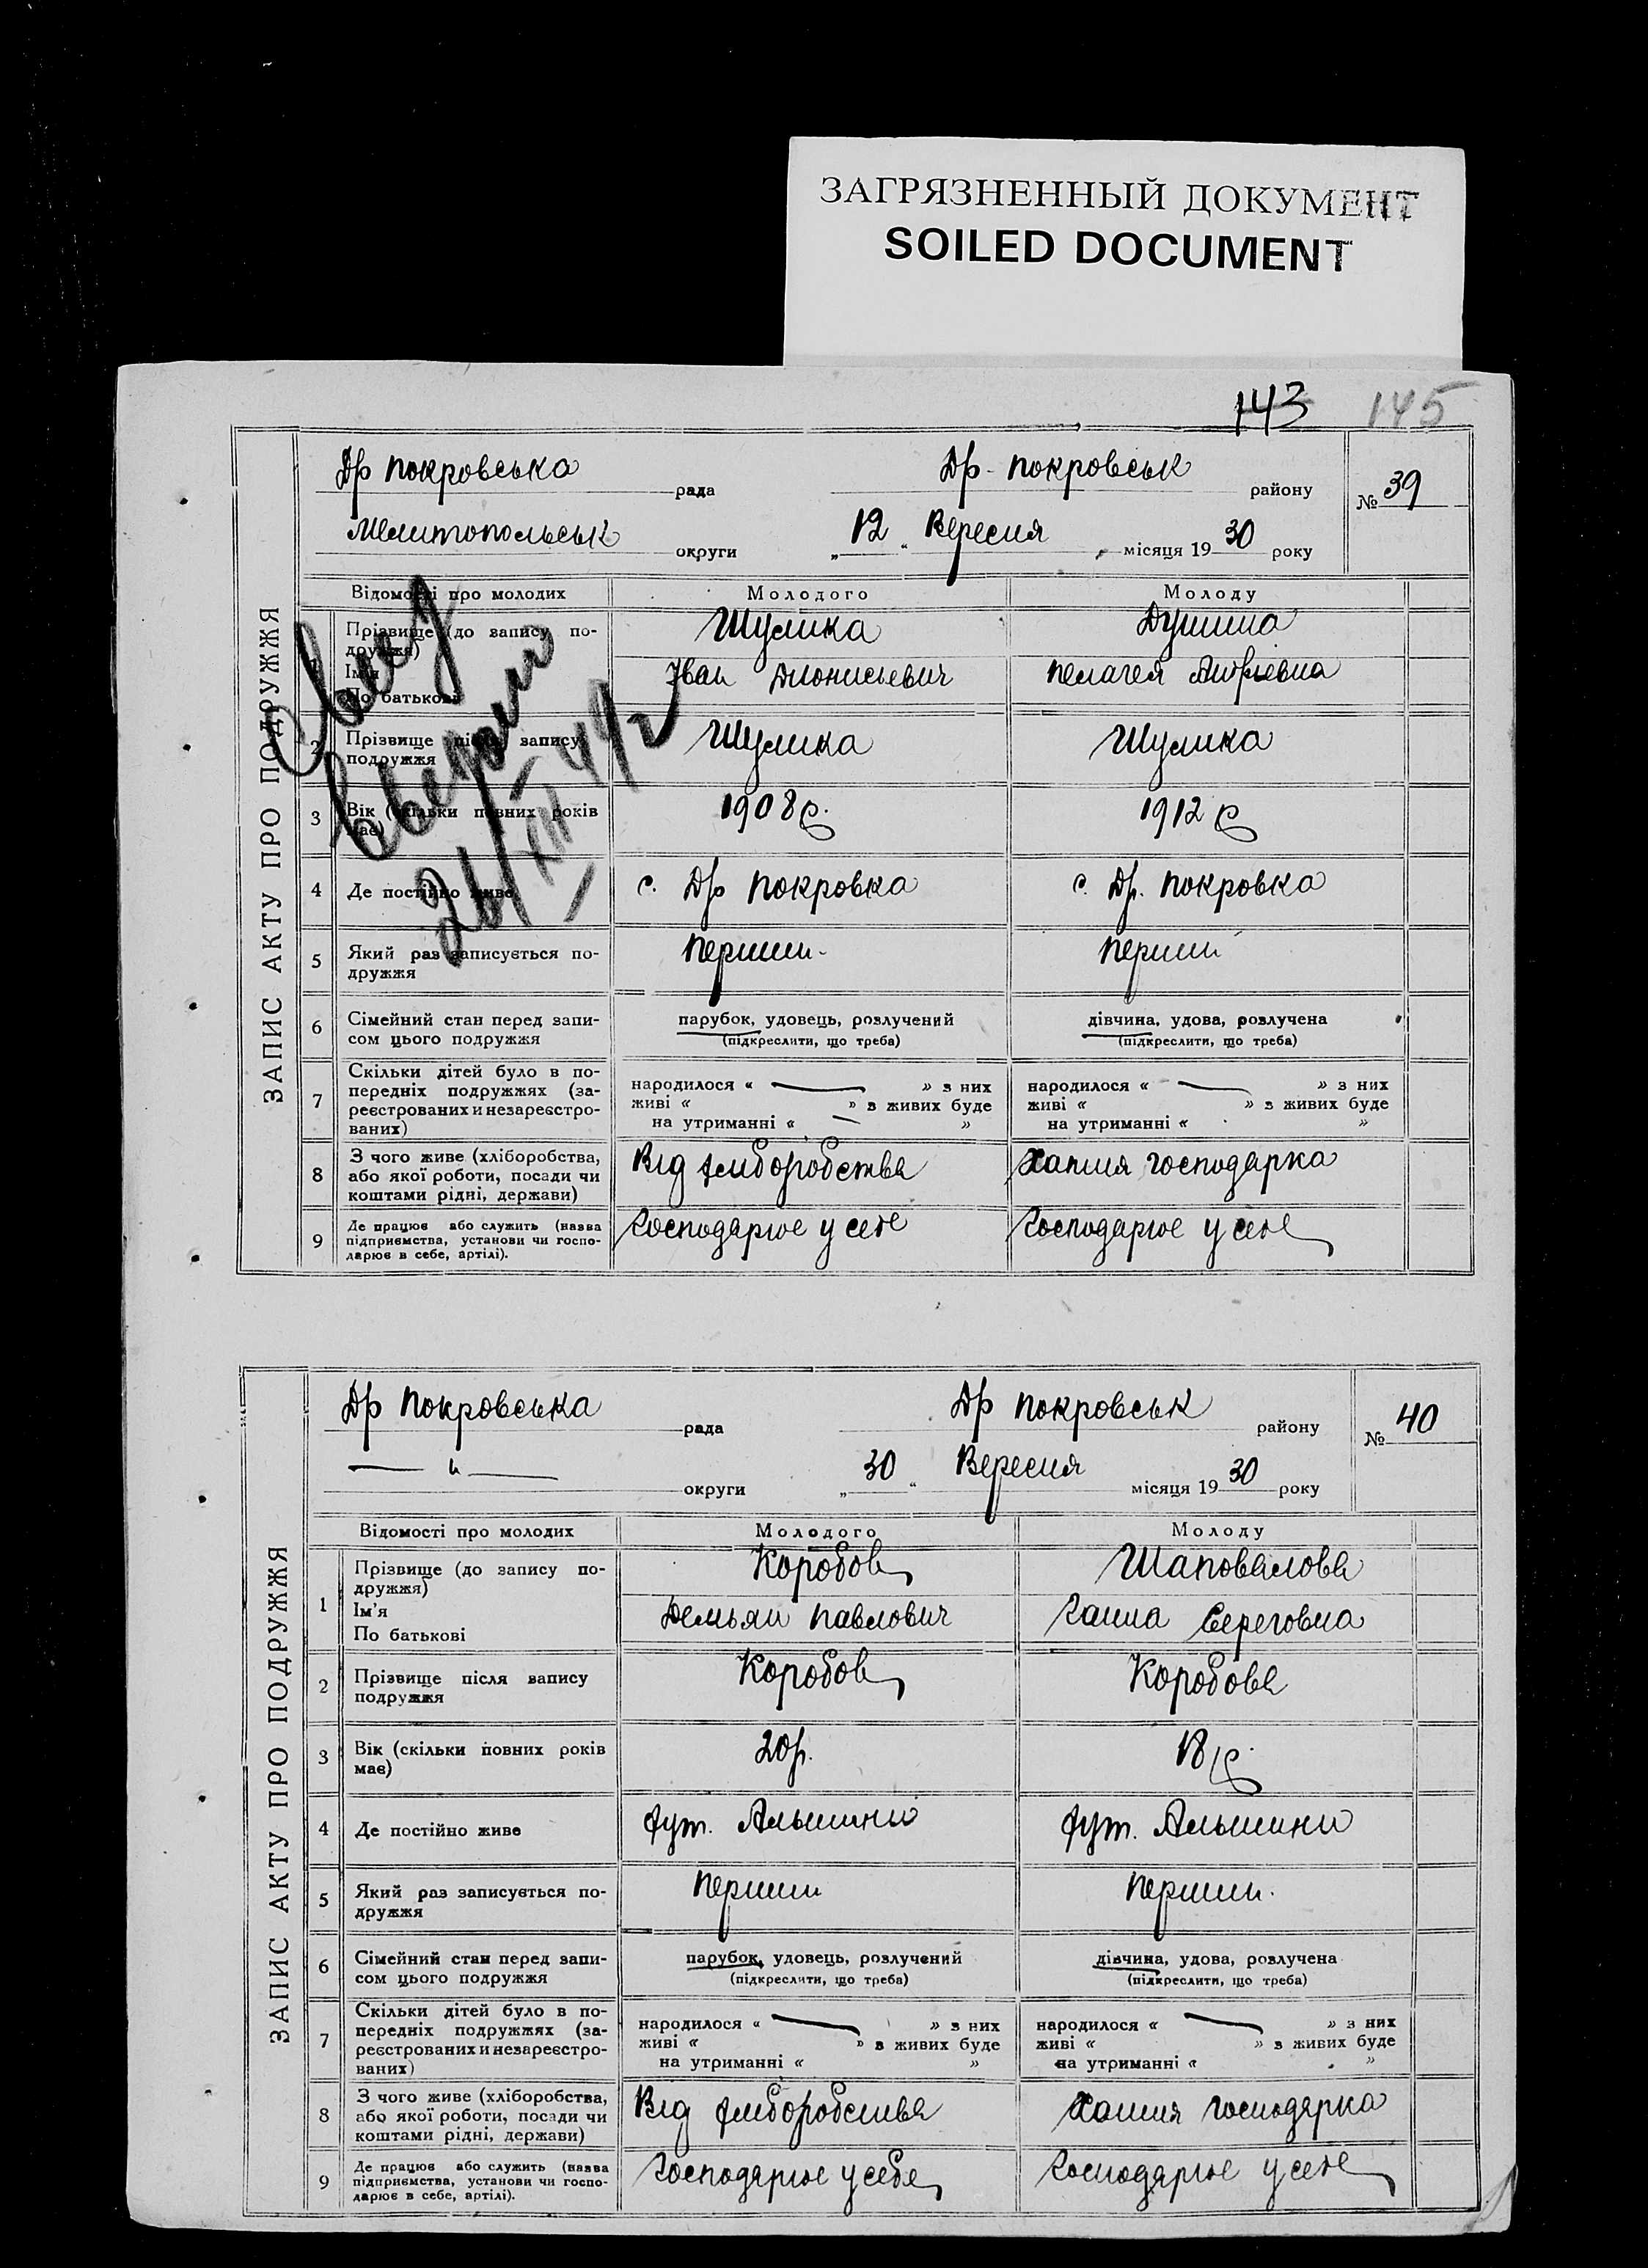 ЗАГРЯЗНЕННЫЙ ДОКУМЕНТ
SOILED DOCUMENT
143 145
ЗАПИС АКТУ ПРО ПОДРУЖЖЯ
Др Покровська рада Др - Покровськ району № 39
Мелитопольськ округи „12“ Вересня місяця 1930 року
Відомості про молодих Молодого Молоду
1 Прізвище (до запису подружжя) Шулика
Ім'я По батькові Іван Дионисьевич Пелагея
2 Прізвище після запису подружжя Шулика Шулика
3 Вік (скільки повних років має) 1908 р. 1912 р
4 Де постійно живе с. Др Покровка с. Др. Покровка
5 Який раз записується подружжя Перший Перший
6 Сімейний стан перед записом цього подружжя парубок, удовець, розлучений дівчина, удова, розлучена
(підкреслити, що треба) (підкреслити, що треба)
7 Скільки дітей було в попередніх подружжях (зареєстрованих и незареєстрованих) народилося « — » з них народилося « — » з них
живі « » з живих буде живі « » з живих буде
на утриманні « — » на утриманні « »
8 З чого живе (хліборобства, або якої роботи, посади чи коштами рідні, держави) Від хліборобства Хатня господарка
9 Де працює або служить (назва підприємства, установи чи господарює в себе, артілі). Господарює у себе Господарює у себе
ЗАПИС АКТУ ПРО ПОДРУЖЖЯ
Др Покровська рада Др Покровськ району № 40
— „ — округи „30“ Вересня місяця 1930 року
Відомості про молодих Молодого Молоду
1 Прізвище (до запису подружжя) Коробов Шаповалова
Ім'я По батькові Демьян Павлович Ганна Сереговна
2 Прізвище після запису подружжя Коробов Коробова
3 Вік (скільки повних років має) 20 р. 18 р.
4 Де постійно живе хут. хут.
5 Який раз записується подружжя Перший Перший.
6 Сімейний стан перед записом цього подружжя парубок, удовець, розлучений дівчина, удова, розлучена
(підкреслити, що треба) (підкреслити, що треба)
7 Скільки дітей було в попередніх подружжях (зареєстрованих и незареєстрованих) народилося « — » з них народилося « — » з них
живі « » з живих буде живі « » з живих буде
на утриманні « » на утриманні « »
8 З чого живе (хліборобства, або якої роботи, посади чи коштами рідні, держави) Від хліборобства Хатня господарка
9 Де працює або служить (назва підприємства, установи чи господарює в себе, артілі). Господарює у себе Господарює у себе